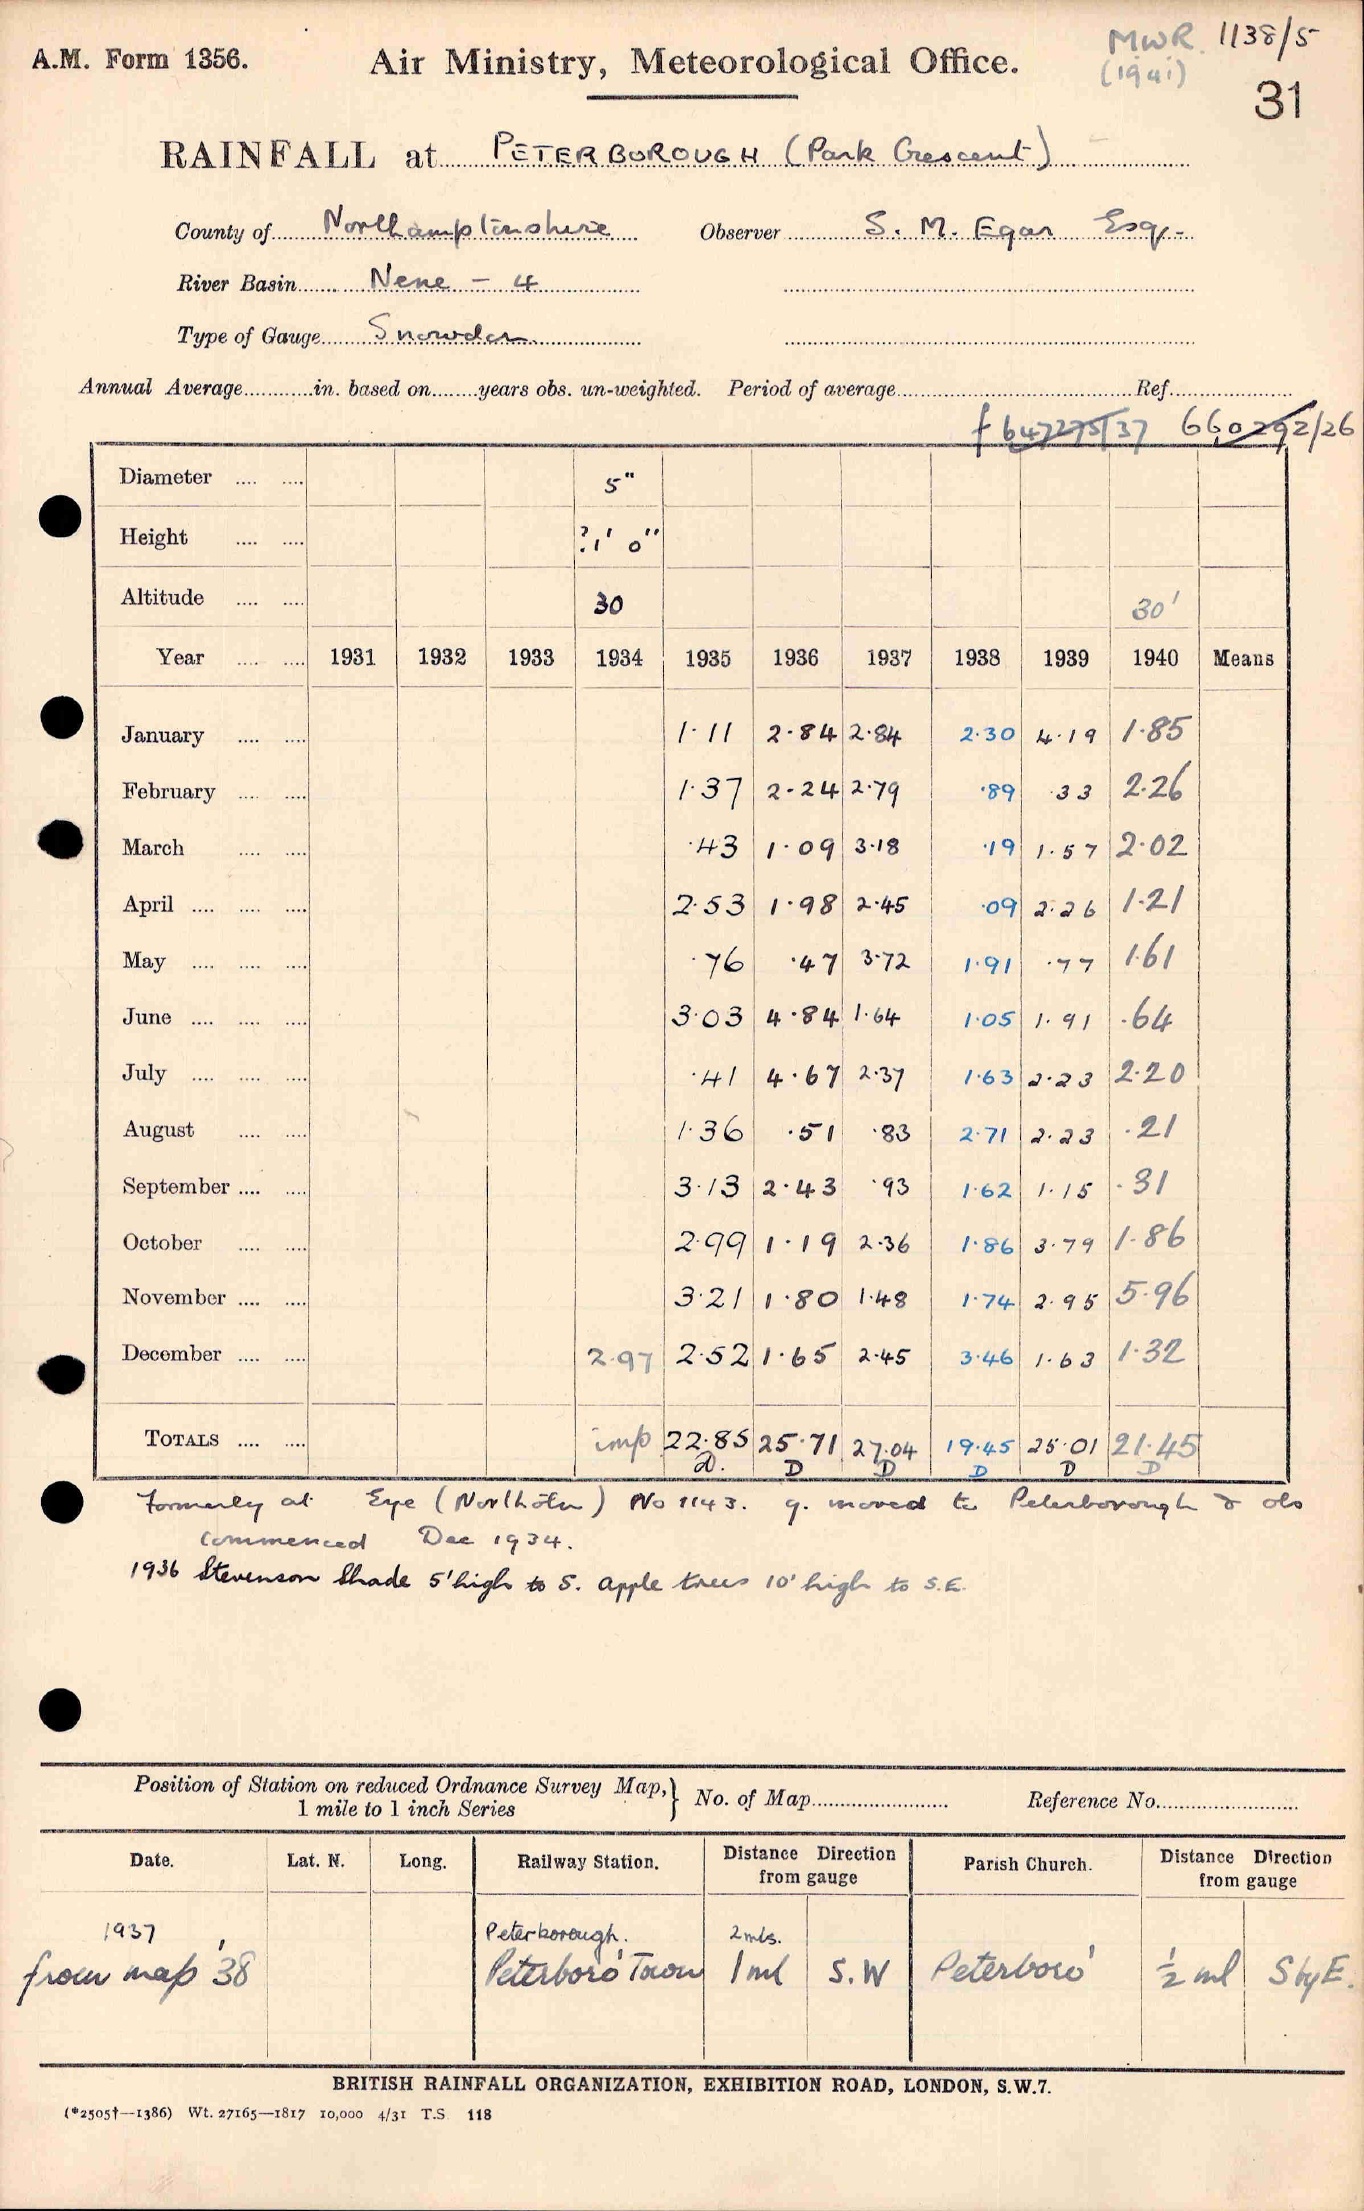 A.M. Form 1356.
Air Ministry, Meteorological Office.
MWR 1138/5
(1941)
31
RAINFALL at PETERBOROUGH (Park Crescent)
County of Northamptonshire Observer S. M. Egar Esq.
River Basin Nene - 4
Type of Gauge Snowdon
Annual Average in. based on years obs. un-weighted. Period of average Ref.
f 647275/37 660292/26
Diameter 5"
Height ? 1' 0"
Altitude 30 30'
Year 1931 1932 1933 1934 1935 1936 1937 1938 1939 1940 Means
January 1.11 2.84 2.84 2.30 4.19 1.85
February 1.37 2.24 2.79 .89 .33 2.26
March .43 1.09 3.18 .19 1.57 2.02
April 2.53 1.98 2.45 .09 2.26 1.21
May .76 .47 3.72 1.91 .77 1.61
June 3.03 4.84 1.64 1.05 1.91 .64
July .41 4.67 2.37 1.63 2.23 2.20
August 1.36 .51 .83 2.71 2.23 .21
September 3.13 2.43 .93 1.62 1.15 .31
October 2.99 1.19 2.36 1.86 3.79 1.86
November 3.21 1.80 1.48 1.74 2.95 5.96
December 2.97 2.52 1.65 2.45 3.46 1.63 1.32
TOTALS imp 22.85 25.71 27.04 19.45 25.01 21.45
D. D D D D D
Formerly at Eye (Northolm) No 1143. g. moved to Peterborough & obs
commenced Dec 1934.
1936 Stevenson Shade 5' high to S. apple trees 10' high to S.E.
Position of Station on reduced Ordnance Survey Map, } No. of Map Reference No.
1 mile to 1 inch Series
Date. Lat. N. Long. Railway Station. Distance Direction from gauge Parish Church. Distance Direction from gauge
1937 Peterborough. 2 mls.
from map '38 Peterboro' Town 1 ml S.W Peterboro' ½ ml S by E.
BRITISH RAINFALL ORGANIZATION, EXHIBITION ROAD, LONDON, S.W.7.
(*2505†—1386) Wt. 27165—1817 10,000 4/31 T.S 118